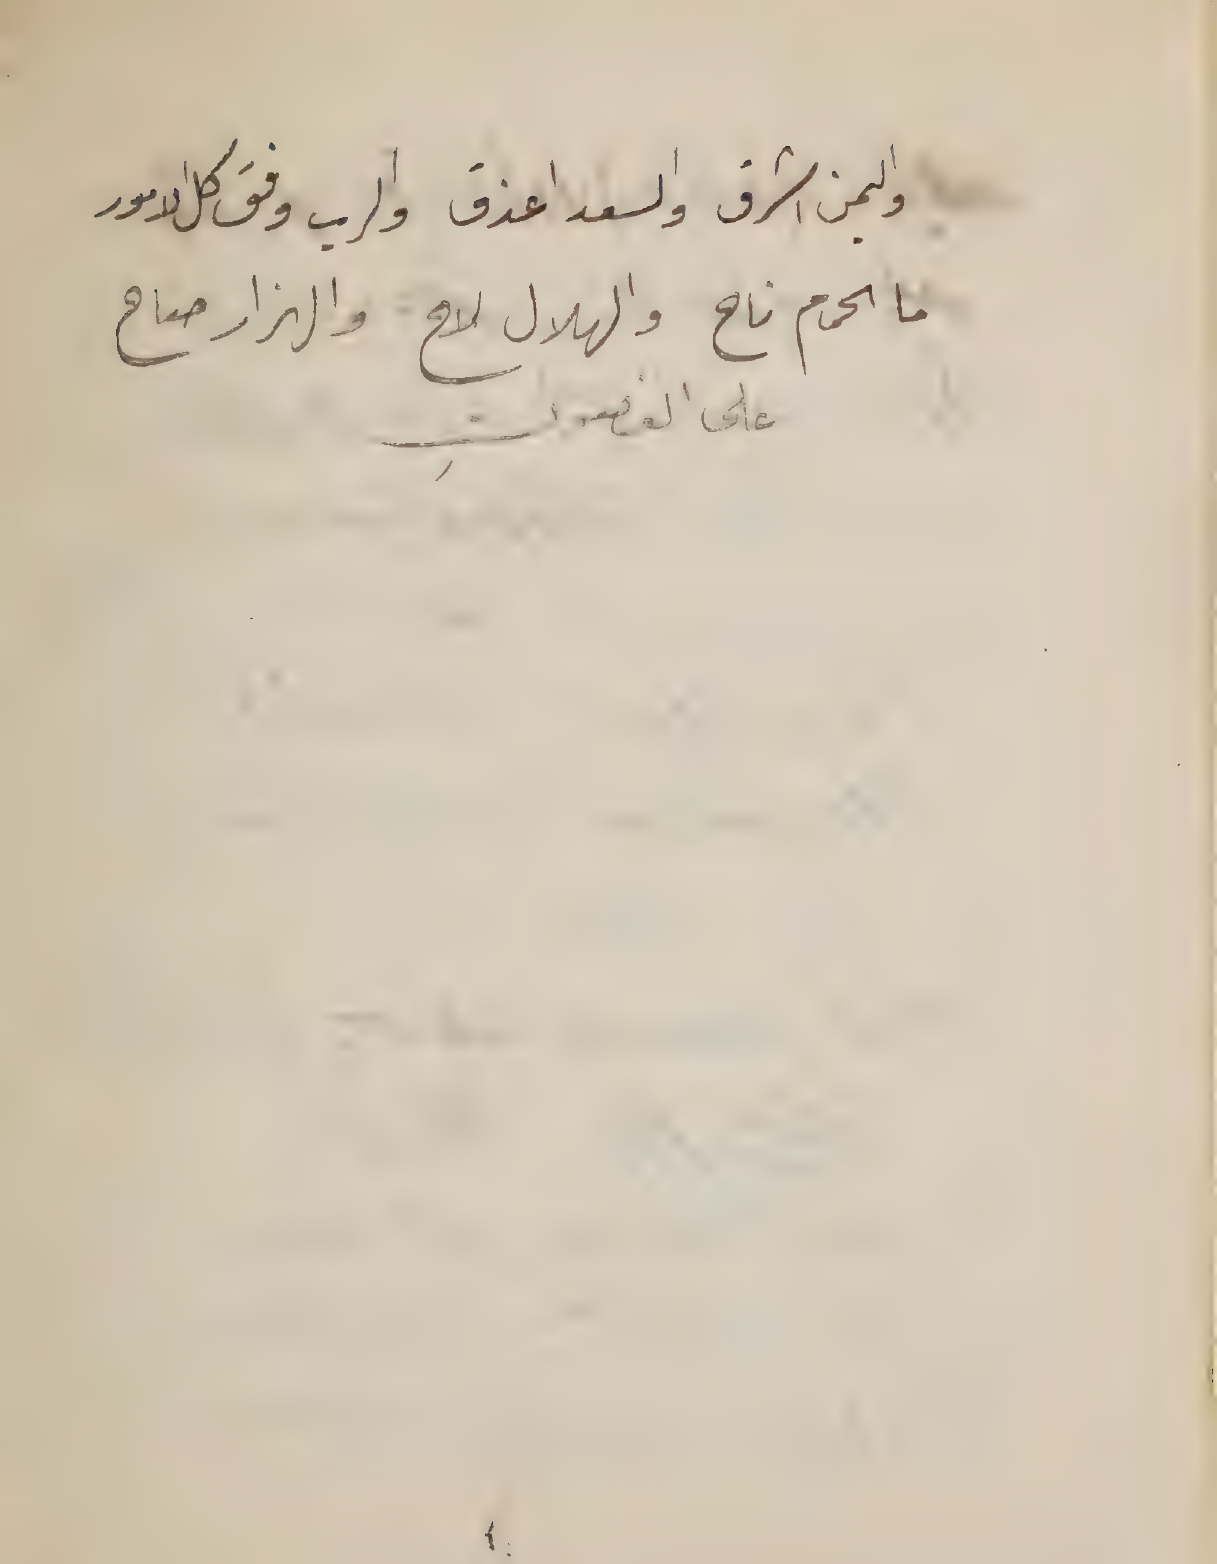 واليمن اشرق والسعد اغدق والرب وفق كل الامور
ما الحمام ناح والهلال لاح والهزار صاح
على الغصون